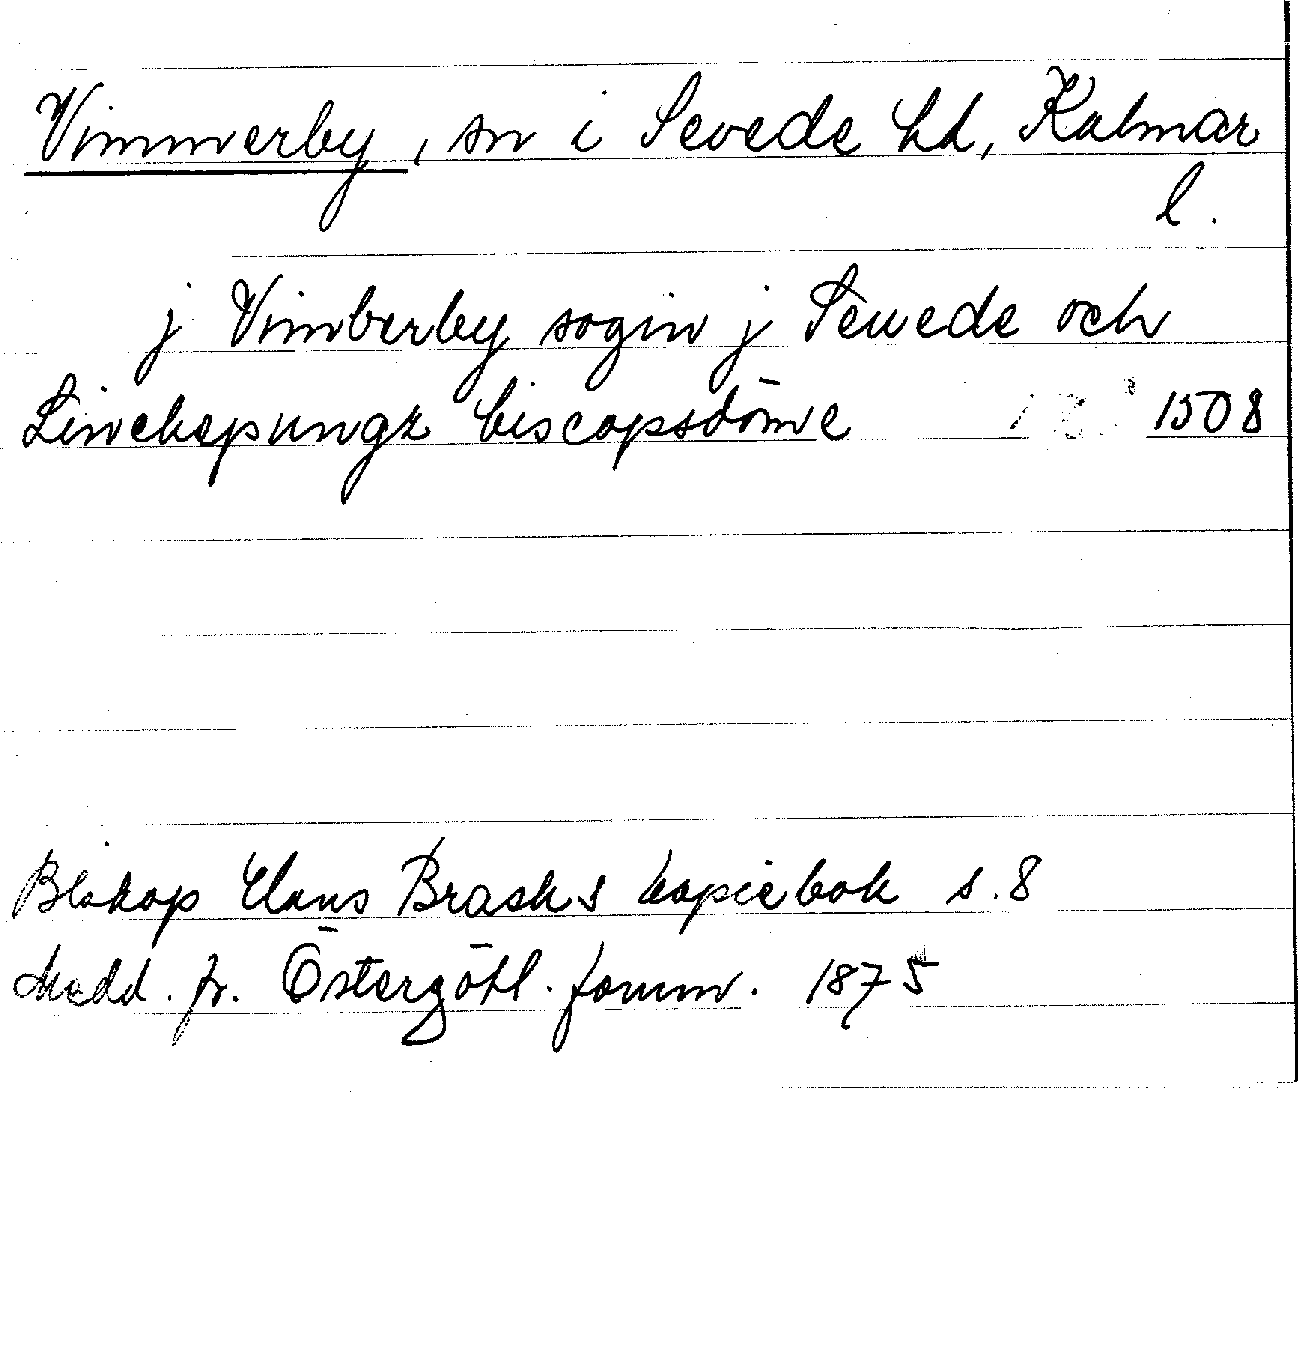 Vimmerby, sn i Sevede hd, Kalmar
l.
j Vimberby sogin j Sewede och
Linchepungx biscopsdöme 1508
Biskop Hans Brasks kopiebok s. 8
Medd. fr. Östergötl. fornm. 1875